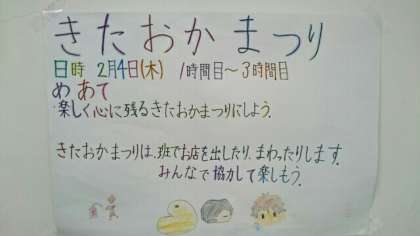 きたおかまつり
日時 2月4日(木) 1時間目～3時間目
めあて
楽しく心に残るきたおかまつりにしよう。
きたおかまつりは、班でお店を出したり、まわったりします。
みんなで協力して楽しもう。